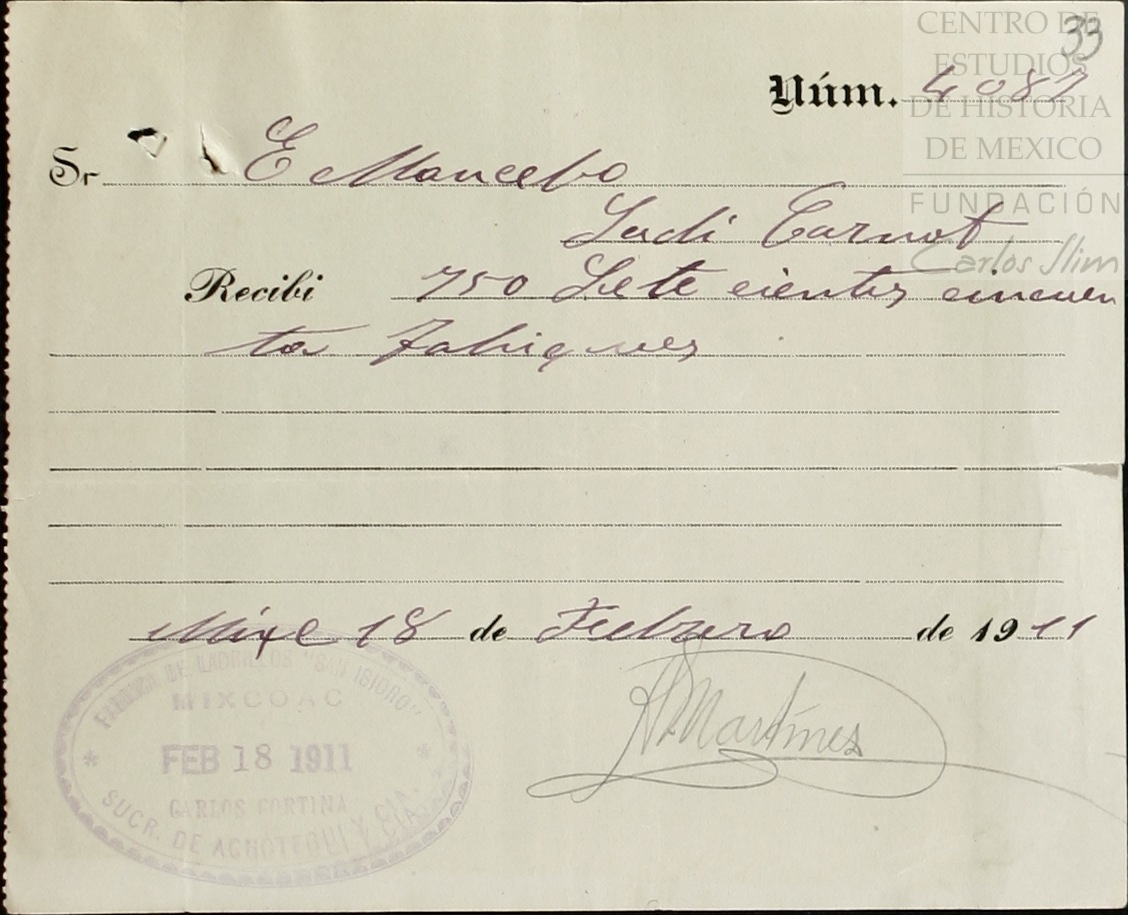 CENTRO DE
ESTUDIOS
DE HISTORIA
DE MEXICO
FUNDACIÓN
Carlos Slim
33
Núm. 4087
Sr E Mancebo
Sadi Carnot
Recibi 750 Sete cientos cincuen
ta Tabiques
Mixc 18 de Febrero de 1911
FABRICA DE LADRILLOS "SAN ISIDRO"
MIXCOAC
FEB 18 1911
CARLOS CORTINA
SUCR. DE ACHOTEGUI Y CIA.
Martínes